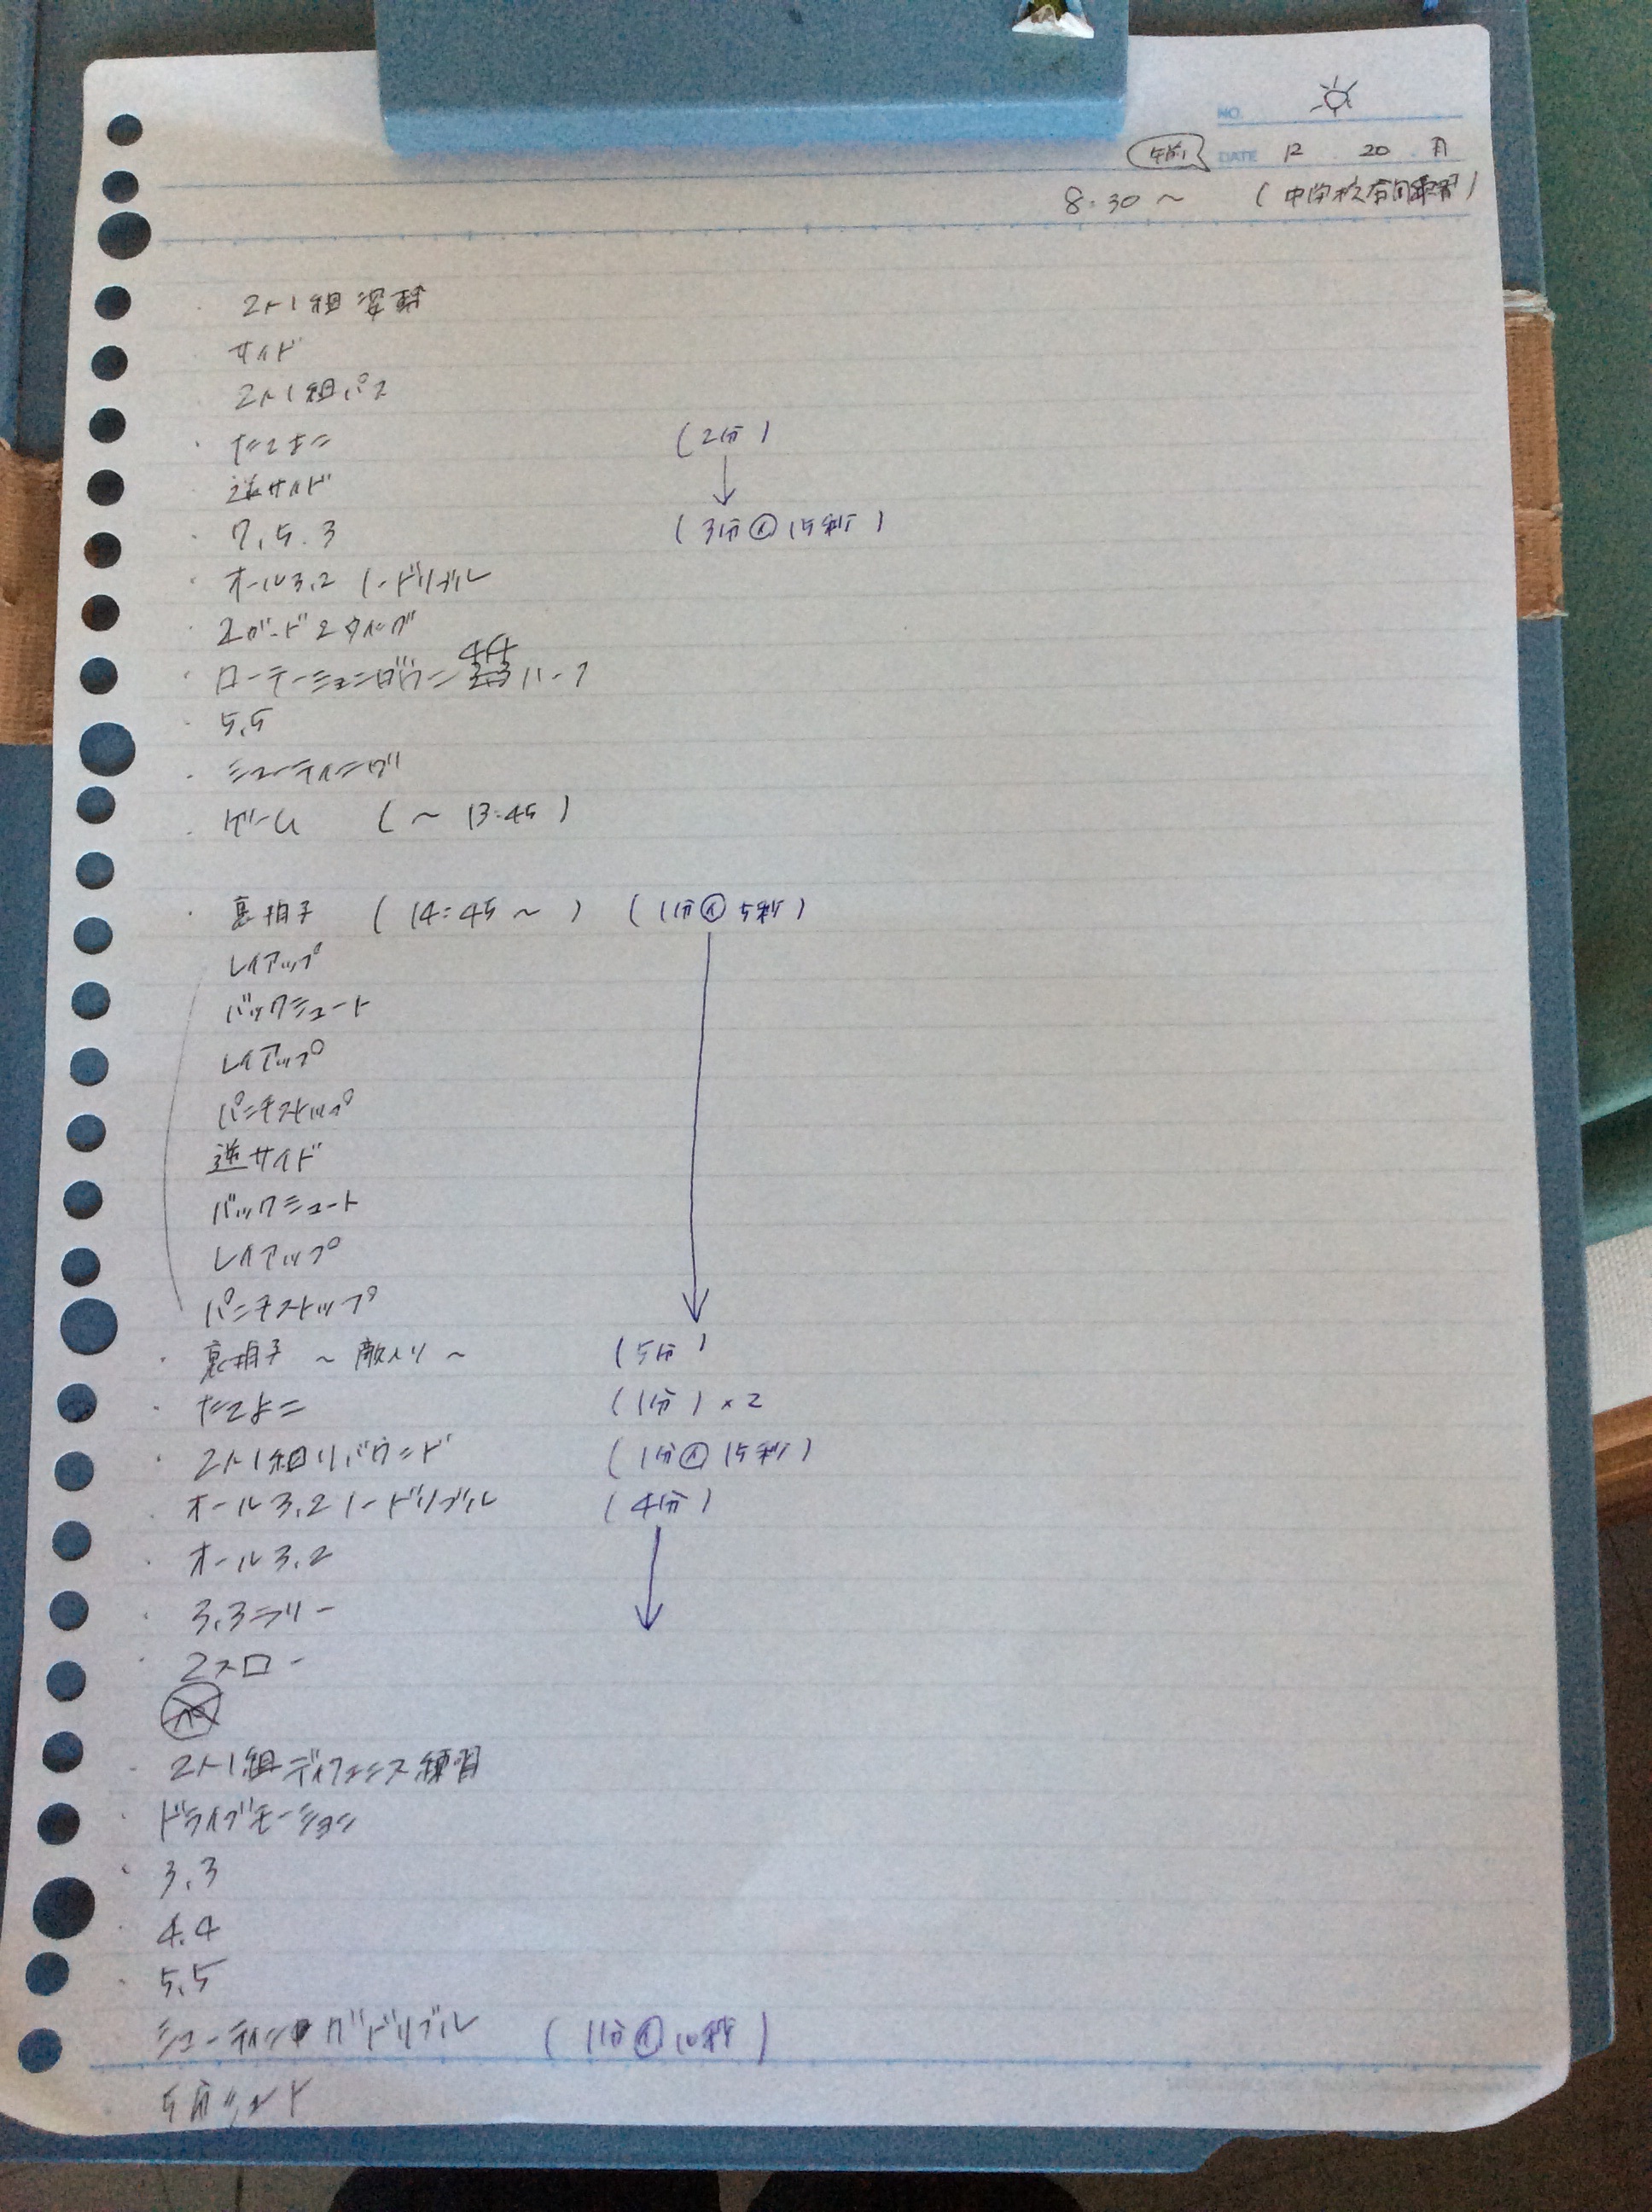 NO.
午前 DATE 12 . 20 . 月
8:30 ～ (中学校合同練習)
・ 2人1組
サイド
2人1組パス
・ たてよこ (2分)
逆サイド
・ 7.5.3 (3分 イ 15秒)
・ オール3.2 ノードリブル
・ 2ガード2ウィング
・ ローテーションダウン 4.4 ハーフ
・ 5.5
・ シューティング
・ ゲーム (～ 13:45)
・ 裏拍子 (14:45～) (1分 イ 5秒)
レイアップ
バックシュート
レイアップ
パンチストップ
逆サイド
バックシュート
レイアップ
パンチストップ
・ 裏拍子 ～敵入り～ (5分)
・ たてよこ (1分)×2
・ 2人1組リバウンド (1分 イ 15秒)
・ オール3.2 ノードリブル (4分)
・ オール3.2
・ 3.3ラリー
・ 2スロー
・ 2人1組ディフェンス練習
・ ドライブモーション
・ 3.3
・ 4.4
・ 5.5
シューティングドリブル (1分 イ 10秒)
5有シュート